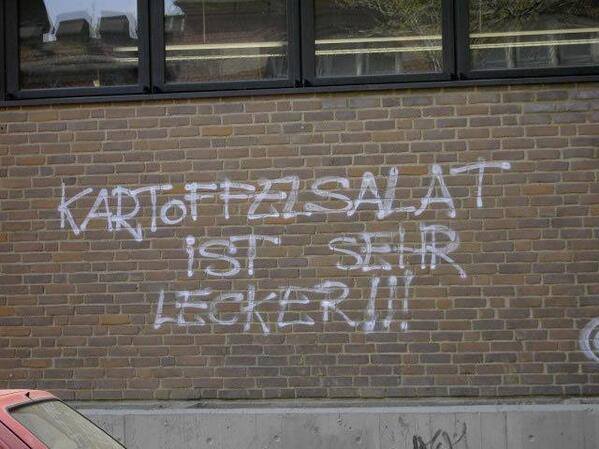 KARTOFFELSALAT
iST SEHR
LECKER!!!